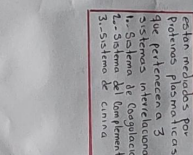 están mediados por
proteínas plasmáticas
que pertenecen a 3
sistemas interrelaciona
1.- Sistema de Coagulació
2.- Sistema del Complemen
3.- Sistema de cinina